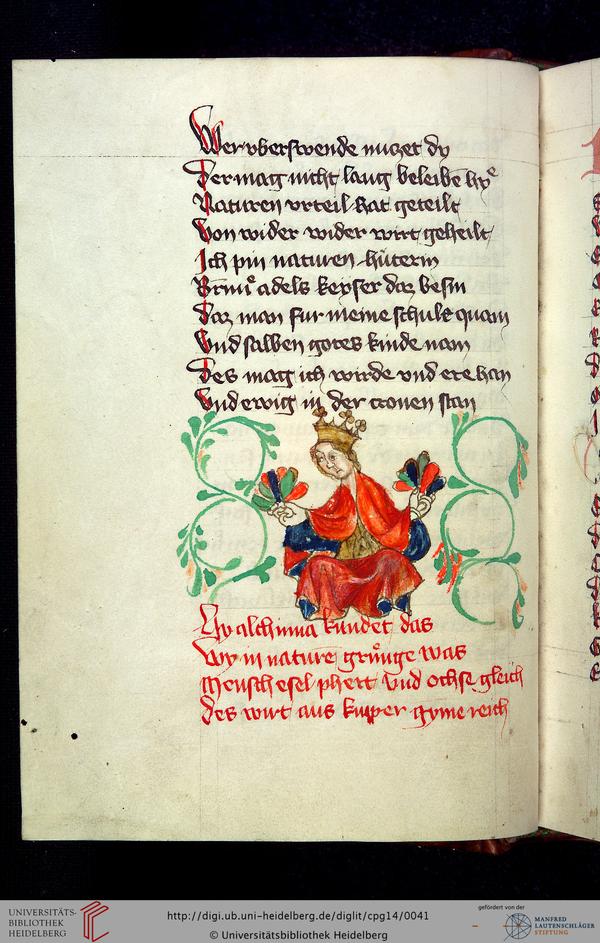 Wer vberswende muzet dy
Der mag nicht lang beleibe hye
Naturen vrteil hat geteilt
Von wider wider wirt geheilt
Ich pin naturen hüterin
adels keyser daz besin
Daz man fur meine schult quam
Vnd salben gotes kinde nam
Des mag ich wirde vnd ere han
Vnd ewig in der cronen stan
Hy alchimia kundet das
Wy in nature grunge was
Mensch esel phert vnd ochse gleich
Des wirt aus kupper gyme reich
UNIVERSITÄTS-
BIBLIOTHEK
HEIDELBERG
http://digi.ub.uni-heidelberg.de/diglit/cpg14/0041
© Universitätsbibliothek Heidelberg
gefördert von der
MANFRED
LAUTENSCHLÄGER
STIFTUNG